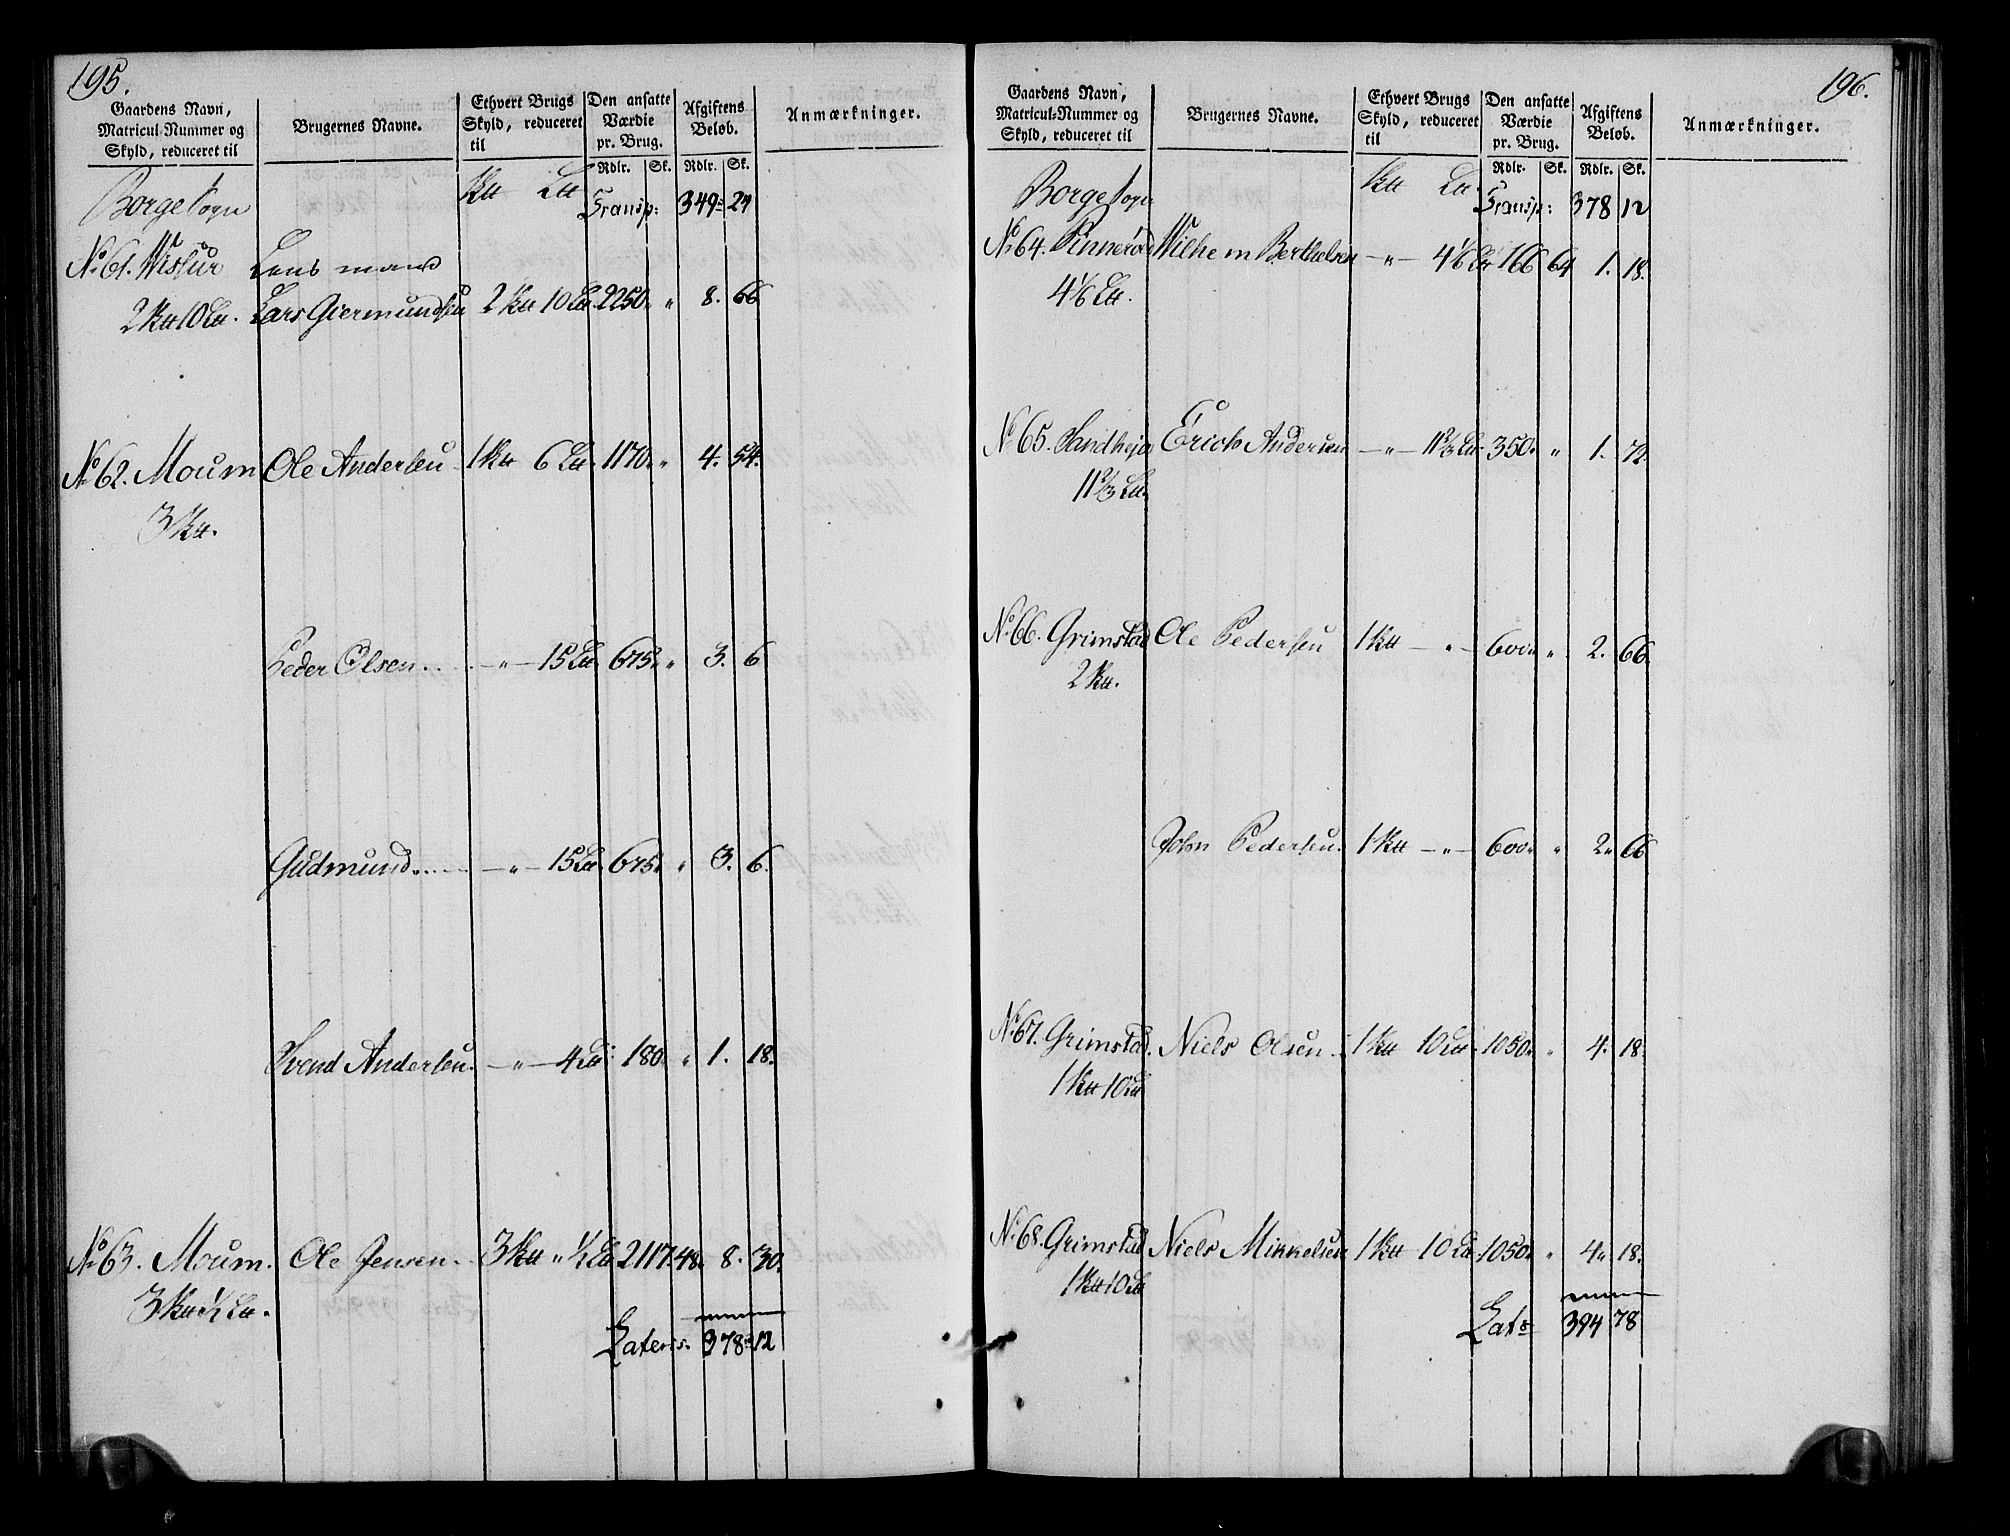 195.
Gaardens Navn, Matricul-Nummer og Skyld, reduceret til
Brugernes Navne.
Ethvert Brugs Skyld, reduceret til
Den ansatte Værdie pr. Brug.
Afgiftens Beløb.
Anmærkninger.
Rdlr. Sk. Rdlr. Sk.
Borge Sogn
Transp: 349 = 24
No 61. Wissur Lens mand
2 10 Lars Giermundsen 2 10 2250 " 8. 66
No 62. Moum Ole Andersen 1 6 1170 " 4. 54.
3
Peder Olsen - " - 15 675 " 3. 6
Gudmund - " - 15 675 " 3. 6.
Svend Andersen - " - 4 180 " 1. 18.
No 63. Moum. Ole Jensen 3 " ½ 2117. 48. 8. 30.
3 ½
Lateris. 378 = 12
196.
Gaardens Navn, Matricul-Nummer og Skyld, reduceret til
Brugernes Navne.
Ethvert Brugs Skyld, reduceret til
Den ansatte Værdie pr. Brug.
Afgiftens Beløb.
Anmærkninger.
Rdlr. Sk. Rdlr. Sk.
Borge Sogn
Transp: 378 12
No 64. Pinnerød Wilhem Berthelsen - " - 4 1/6 166 64 1. 18.
4 1/6
No 65. Sandheja Erich Andersen - " - 11 2/3 350 " 1. 72.
11 2/3
No 66. Grimstad Ole Pedersen 1 - " - 600 " 2. 66.
2
John Pedersen. 1 - " - 600 " 2 " 66
No 67. Grimstad. Niels Olsen 1 10 1050 " 4. 18.
1 10
No 68. Grimstad Niels Mikkelsen 1 10 1050 " 4 " 18.
1 10
Lat 394 78